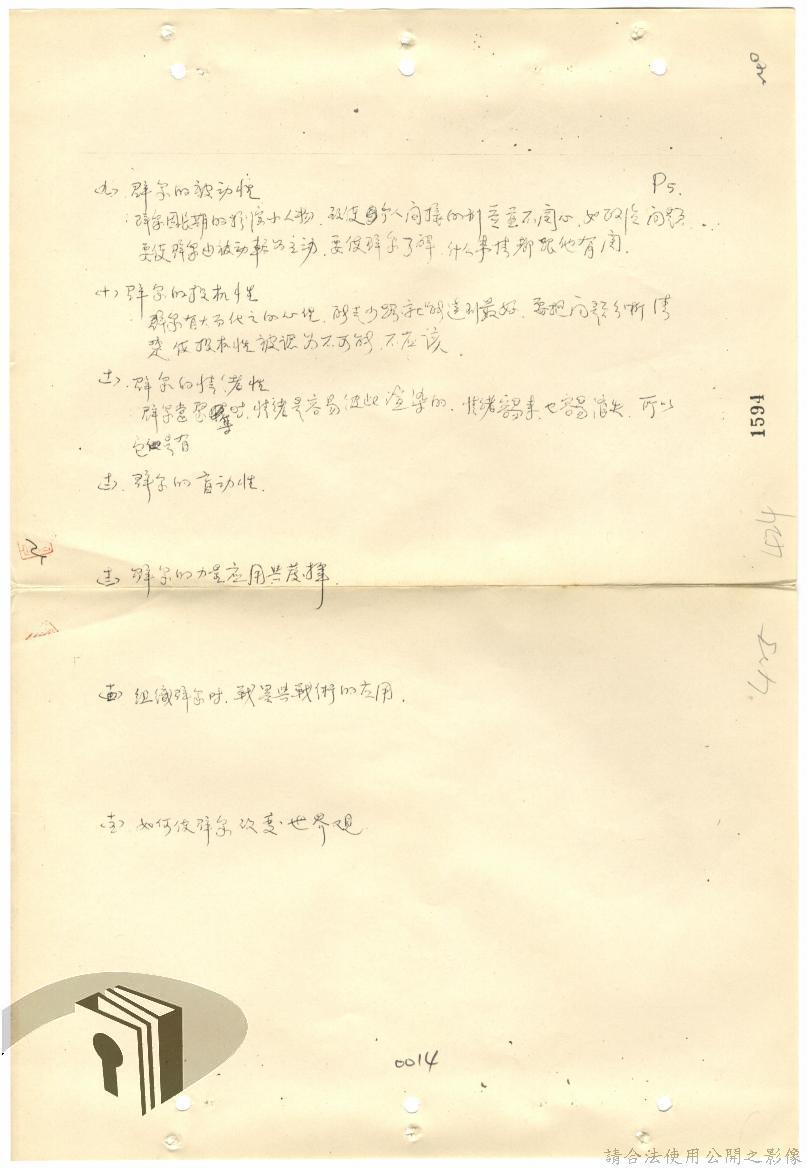 P5.
(九) 群众的被动性
群众因长期的 小人物, 致使 个人间接的利益並不関心, 如政治问题...
要使群众由被动転为主动, 要使群众了解, 什么事情都跟他有関.
(十) 群众的投机性
群众有 的心理, 能走 就能達到最好, 要把问题分析清
楚使投机性被認为不可能, 不应该.
(十一) 群众的情绪性
群众 时, 情绪是容易彼此渲染的, 情绪容易来, 也容易消失, 可以
(十二) 群众的盲动性.
(十三) 群众的力量应用与发揮.
(十四) 组織群众时, 戰畧與戰術的应用.
(十五) 如何使群众改变世界观
1594
0014
請合法使用公開之影像